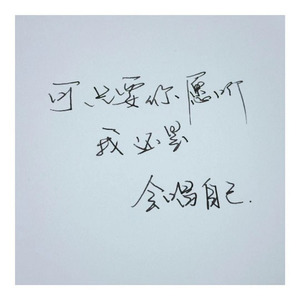 可,只要你愿听
我还是
会唱自己.